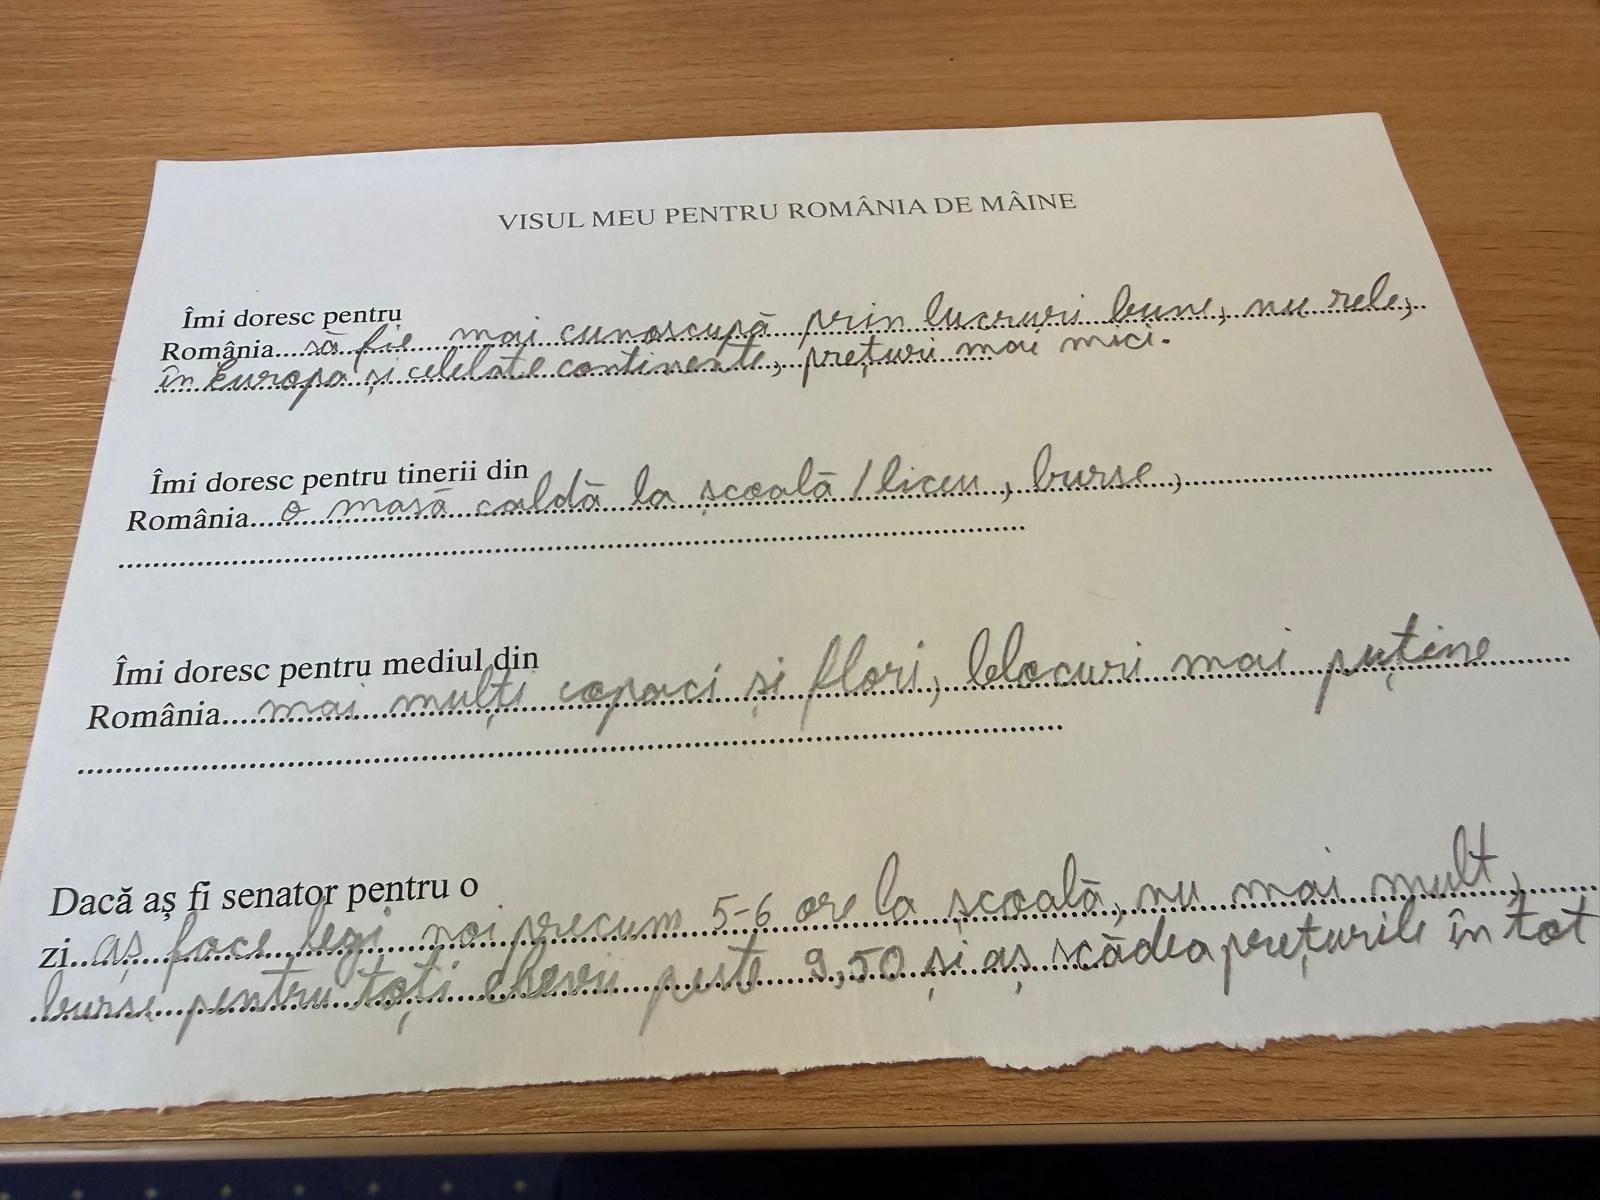 VISUL MEU PENTRU ROMÂNIA DE MÂINE
Îmi doresc pentru
România....să fie mai cunoscupă prin lucruri bune, nu rele,
în Europa și celelate continente, prețuri mai mici.
Îmi doresc pentru tinerii din
România....o masă caldă la școală/liceu, burse,
Îmi doresc pentru mediul din
România....mai mulți copaci și flori, blocuri mai puține
Dacă aș fi senator pentru o
zi..aș face legi noi precum 5-6 ore la școală, nu mai mult,
burse pentru toți elevii peste 9,50 și aș scădea prețurile în tot